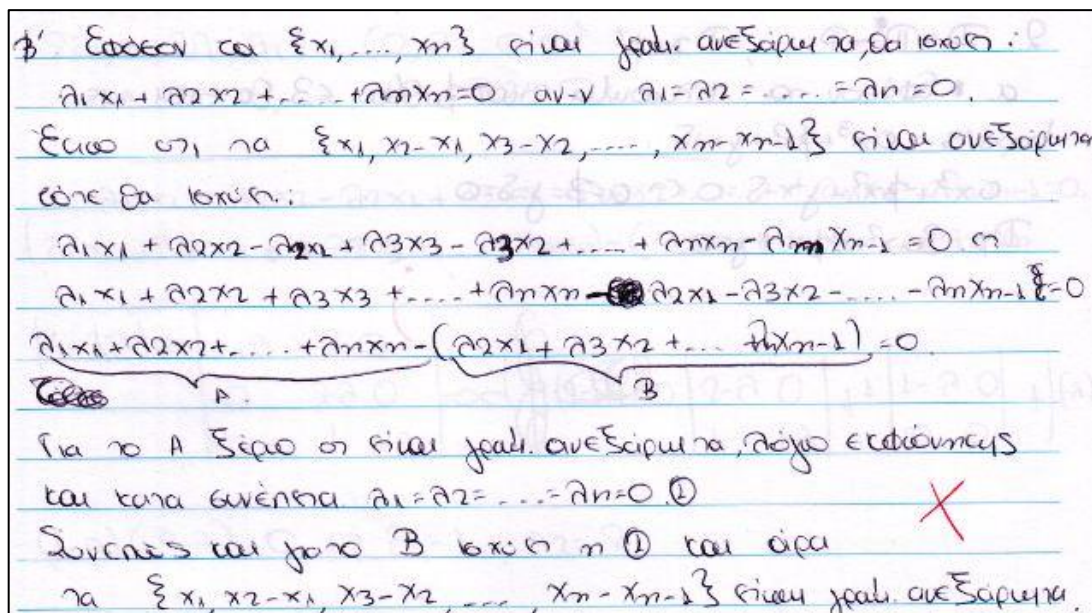 β' Εφόσον τα {x1, ..., xn} είναι γραμ. ανεξάρτητα, θα ισχύει:
λ1x1 + λ2x2 + ..... + λnxn = 0 αν-ν λ1 = λ2 = ..... = λn = 0.
Έστω ότι τα {x1, x2-x1, x3-x2, ...., xn-xn-1} είναι ανεξάρτητα
τότε θα ισχύει:
λ1x1 + λ2x2 - λ2x1 + λ3x3 - λ3x2 + ..... + λnxn - λnxn-1 = 0
λ1x1 + λ2x2 + λ3x3 + ..... + λnxn - λ2x1 - λ3x2 - ..... - λnxn-1 = 0
λ1x1 + λ2x2 + ..... + λnxn - (λ2x1 + λ3x2 + .... + λnxn-1) = 0.
A B
Για το A ξέρω ότι είναι γραμ. ανεξάρτητα, λόγω εκφώνησης
και κατα συνέπεια λ1 = λ2 = .... = λn = 0. ①
Συνεπώς και για το B ισχύει η ① και άρα
τα {x1, x2-x1, x3-x2, ....., xn-xn-1} είναι γραμ. ανεξάρτητα